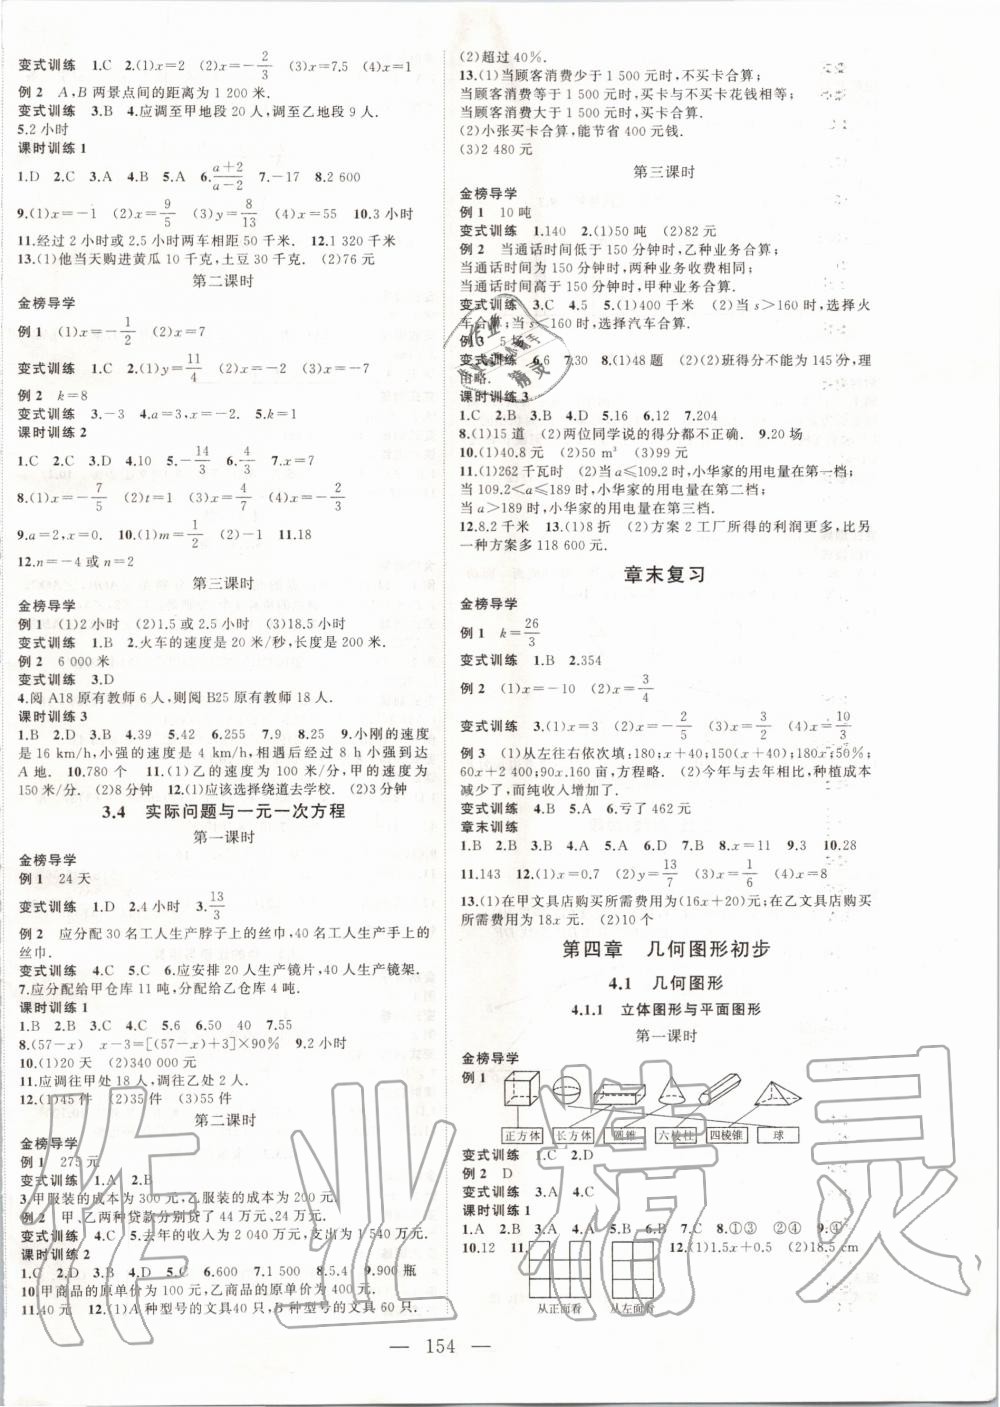 变式训练 1.C 2.(1)x=2 (2)x=-2/3 (3)x=7.5 (4)x=1
例 2 A,B 两景点间的距离为 1 200 米.
变式训练 3.B 4.应调至甲地段 20 人,调至乙地段 9 人.
5.2 小时
课时训练 1
1.D 2.C 3.A 4.B 5.A 6.a+2/a-2 7.-17 8.2 600
9.(1)x=-1 (2)x=9/5 (3)y=8/13 (4)x=55 10.3 小时
11.经过 2 小时或 2.5 小时两车相距 50 千米. 12.1 320 千米
13.(1)他当天购进黄瓜 10 千克,土豆 30 千克. (2)76 元
第二课时
金榜导学
例 1 (1)x=-1/2 (2)x=7
变式训练 1.C 2.(1)y=11/4 (2)-2 (3)x=7
例 2 k=8
变式训练 3.-3 4.a=3,x=-2. 5.k=1
课时训练 2
1.C 2.C 3.D 4.10 5.-14/3 6.4/3 7.x=7
8.(1)x=-7/5 (2)t=1 (3)x=4/7 (4)x=-2/3
9.a=2,x=0. 10.(1)m=1/2 (2)-1 11.18
12.n=-4 或 n=2
第三课时
例 1 (1)2 小时 (2)1.5 或 2.5 小时 (3)18.5 小时
变式训练 1.B 2.火车的速度是 20 米/秒,长度是 200 米.
例 2 6 000 米
变式训练 3.D
4.阅 A18 原有教师 6 人,则阅 B25 原有教师 18 人.
课时训练 3
1.B 2.D 3.B 4.39 5.42 6.255 7.9 8.25 9.小刚的速度
是 16 km/h,小强的速度是 4 km/h,相遇后经过 8 h 小强到达
A 地. 10.780 个 11.(1)乙的速度为 100 米/分,甲的速度为
150 米/分. (2)8 分钟 12.(1)应该选择绕道去学校. (2)3 分钟
3.4 实际问题与一元一次方程
第一课时
金榜导学
例 1 24 天
变式训练 1.D 2.4 小时 3.13/3
例 2 应分配 30 名工人生产脖子上的丝巾,40 名工人生产手上的
丝巾.
变式训练 4.C 5.C 6.应安排 20 人生产镜片,40 人生产镜架.
7.应分配给甲仓库 11 吨,分配给乙仓库 4 吨.
课时训练 1
1.B 2.B 3.C 4.C 5.6 6.50 40 7.55
8.(57-x) x-3=[(57-x)+3]×90% 9.2 小时
10.(1)20 天 (2)340 000 元
11.应调往甲处 18 人,调往乙处 2 人.
12.(1)45 件 (2)35 件 (3)55 件
第二课时
金榜导学
例 1 275 元
变式训练 1.A 2.B
3.甲服装的成本为 300 元,乙服装的成本为 200 元.
例 2 甲、乙两种贷款分别贷了 44 万元,24 万元.
变式训练 4.C 5.去年的收入为 2 040 万元,支出为 1 540 万元.
课时训练 2
1.A 2.B 3.B 4.A 5.C 6.600 7.1 500 8.5.4 9.900 瓶
10.甲商品的原单价为 100 元,乙商品的原单价为 400 元.
11.40 元 12.(1)A 种型号的文具40 只,B 种型号的文具 60 只.
(2)超过 40%.
13.(1)当顾客消费少于 1 500 元时,不买卡合算;
当顾客消费等于 1 500 元时,买卡与不买卡花钱相等;
当顾客消费大于 1 500 元时,买卡合算.
(2)小张买卡合算,能节省 400 元钱.
(3)2 480 元
第三课时
金榜导学
例 1 10 吨
变式训练 1.140 2.(1)50 吨 (2)82 元
例 2 当通话时间低于 150 分钟时,乙种业务合算;
当通话时间为 150 分钟时,两种业务收费相同;
当通话时间高于 150 分钟时,甲种业务合算.
变式训练 3.C 4.5 5.(1)400千米 (2)当 s>160 时,选择火
车合算;当 s<160 时,选择汽车合算.
例 3 5
变式训练 6.6 7.30 8.(1)48 题 (2)(2)班得分不能为 145 分,理
由略.
课时训练 3
1.C 2.B 3.B 4.D 5.16 6.12 7.204
8.(1)15 道 (2)两位同学说的得分都不正确. 9.20 场
10.(1)40.8 元 (2)50 m³ (3)99 元
11.(1)262 千瓦时 (2)当 a≤109.2 时,小华家的用电量在第一档;
当 109.2<a≤189 时,小华家的用电量在第二档;
当 a>189 时,小华家的用电量在第三档.
12.8.2 千米 13.(1)8 折 (2)方案 2 工厂所得的利润更多,比另
一种方案多 118 600 元.
章末复习
金榜导学
例 1 k=26/3
变式训练 1.B 2.354
例 2 (1)x=-10 (2)x=3/4
变式训练 3.(1)x=3 (2)x=-2/5 (3)x=3/2 (4)x=10/3
例 3 (1)从左往右依次填:180;x+40;150(x+40);180x;50%;
60x+2 400;90x.160 亩,方程略. (2)今年与去年相比,种植成本
减少了,而纯收入增加了.
变式训练 4.B 5.A 6.亏了 462 元
章末训练
1.B 2.B 3.C 4.A 5.D 6.B 7.B 8.x=11 9.3 10.28
11.143 12.(1)x=0.7 (2)y=13/7 (3)x=1/6 (4)x=8
13.(1)在甲文具店购买所需费用为(16x+20)元,在乙文具店购买
所需费用为 18x 元. (2)10 个
第四章 几何图形初步
4.1 几何图形
4.1.1 立体图形与平面图形
第一课时
金榜导学
例 1
正方体 长方体 圆锥 六棱柱 四棱锥 球
变式训练 1.C 2.D
例 2 D
变式训练 3.A 4.C
课时训练 1
1.A 2.B 3.A 4.A 5.B 6.B 7.C 8.①③ ②④ 9.④
10.12 11. 12.(1)1.5x+0.5 (2)18.5 cm
从正面看 从左面看
— 154 —
作业精灵